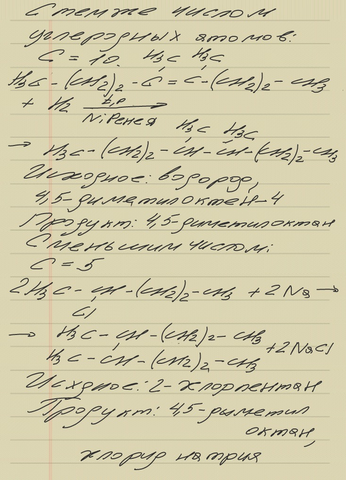 С тем же числом
углеродных атомов:
C = 10. H₃C H₃C
H₃C - (CH₂)₂ - C = C - (CH₂)₂ - CH₃
+ H₂ t, p →
Ni Ренея
H₃C H₃C
→ H₃C - (CH₂)₂ - CH - CH - (CH₂)₂ - CH₃
Исходное: водород,
4,5-диметилоктен-4
Продукт: 4,5-диметилоктан
С меньшим числом:
C = 5
2H₃C - CH - (CH₂)₂ - CH₃ + 2Na →
Cl
→ H₃C - CH - (CH₂)₂ - CH₃
+ 2NaCl
H₃C - CH - (CH₂)₂ - CH₃
Исходное: 2-хлорпентан
Продукт: 4,5-диметил
октан,
хлорид натрия